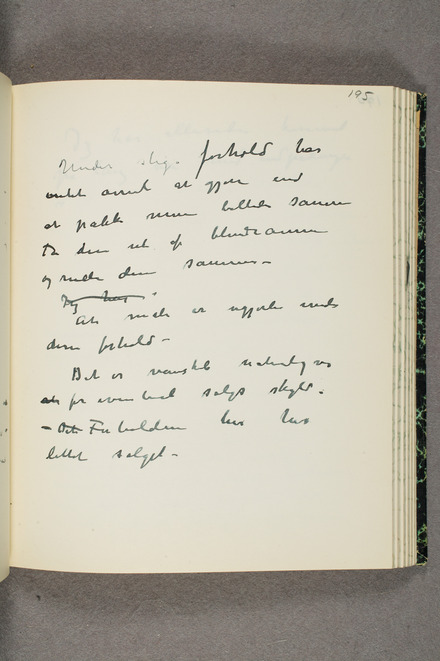 195
Under slig. forhold har
intet annet at gjøre end
at pakke mine billeder sammen
Ta dem ut af blindrammen
og rulle dem sammen –
Jeg har
At male er ugjørlig under
disse forhold –
Det er vanskelig naturligvis
for eventuelt salgs skyld.
– Det Forholdene her har
lettet salget –